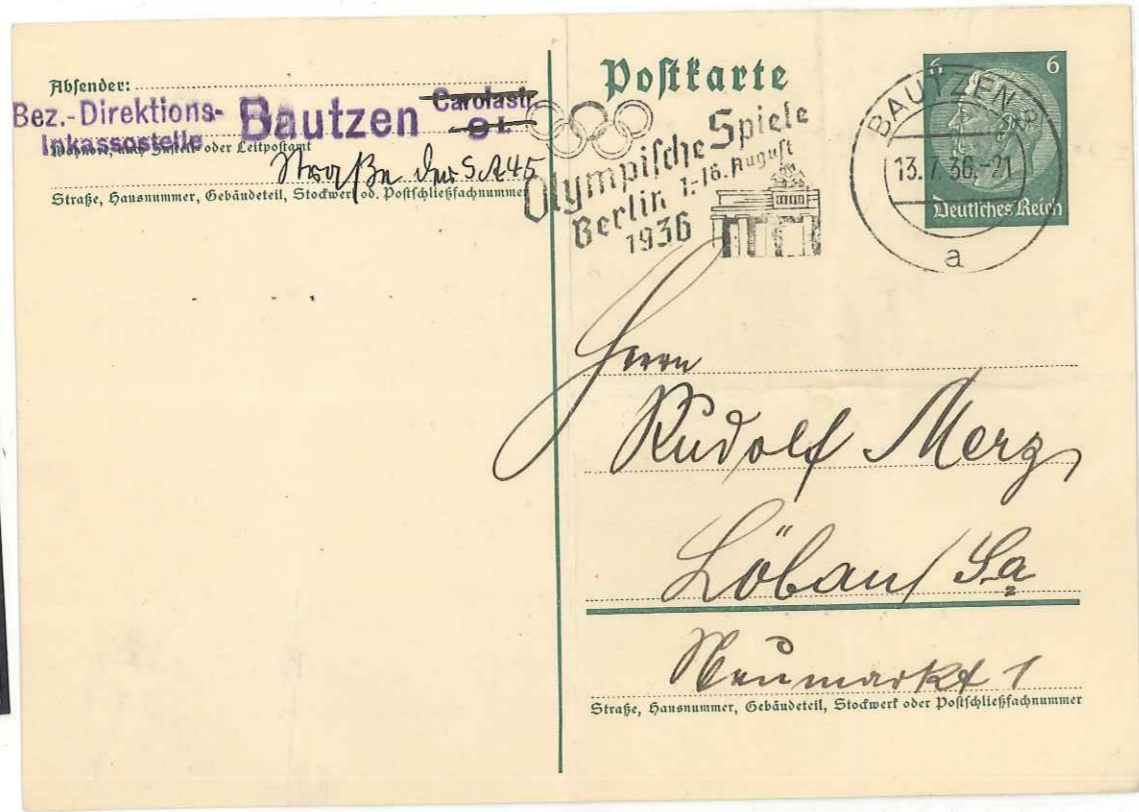 Absender:
Bez.-Direktions-
Inkassostelle
Bautzen
Carolastr.
9 I.
Wohnort, auch Zustell- oder Leitpostamt
Straße der S.A 45
Straße, Hausnummer, Gebäudeteil, Stockwerk od. Postschließfachnummer
Postkarte
Olympische Spiele
Berlin 1.-16. August
1936
6 6
Deutsches Reich
BAUTZEN
13.7.36.-21
a
Herrn
Rudolf Merz
Löbau/Sa
Neumarkt 1
Straße, Hausnummer, Gebäudeteil, Stockwerk oder Postschließfachnummer